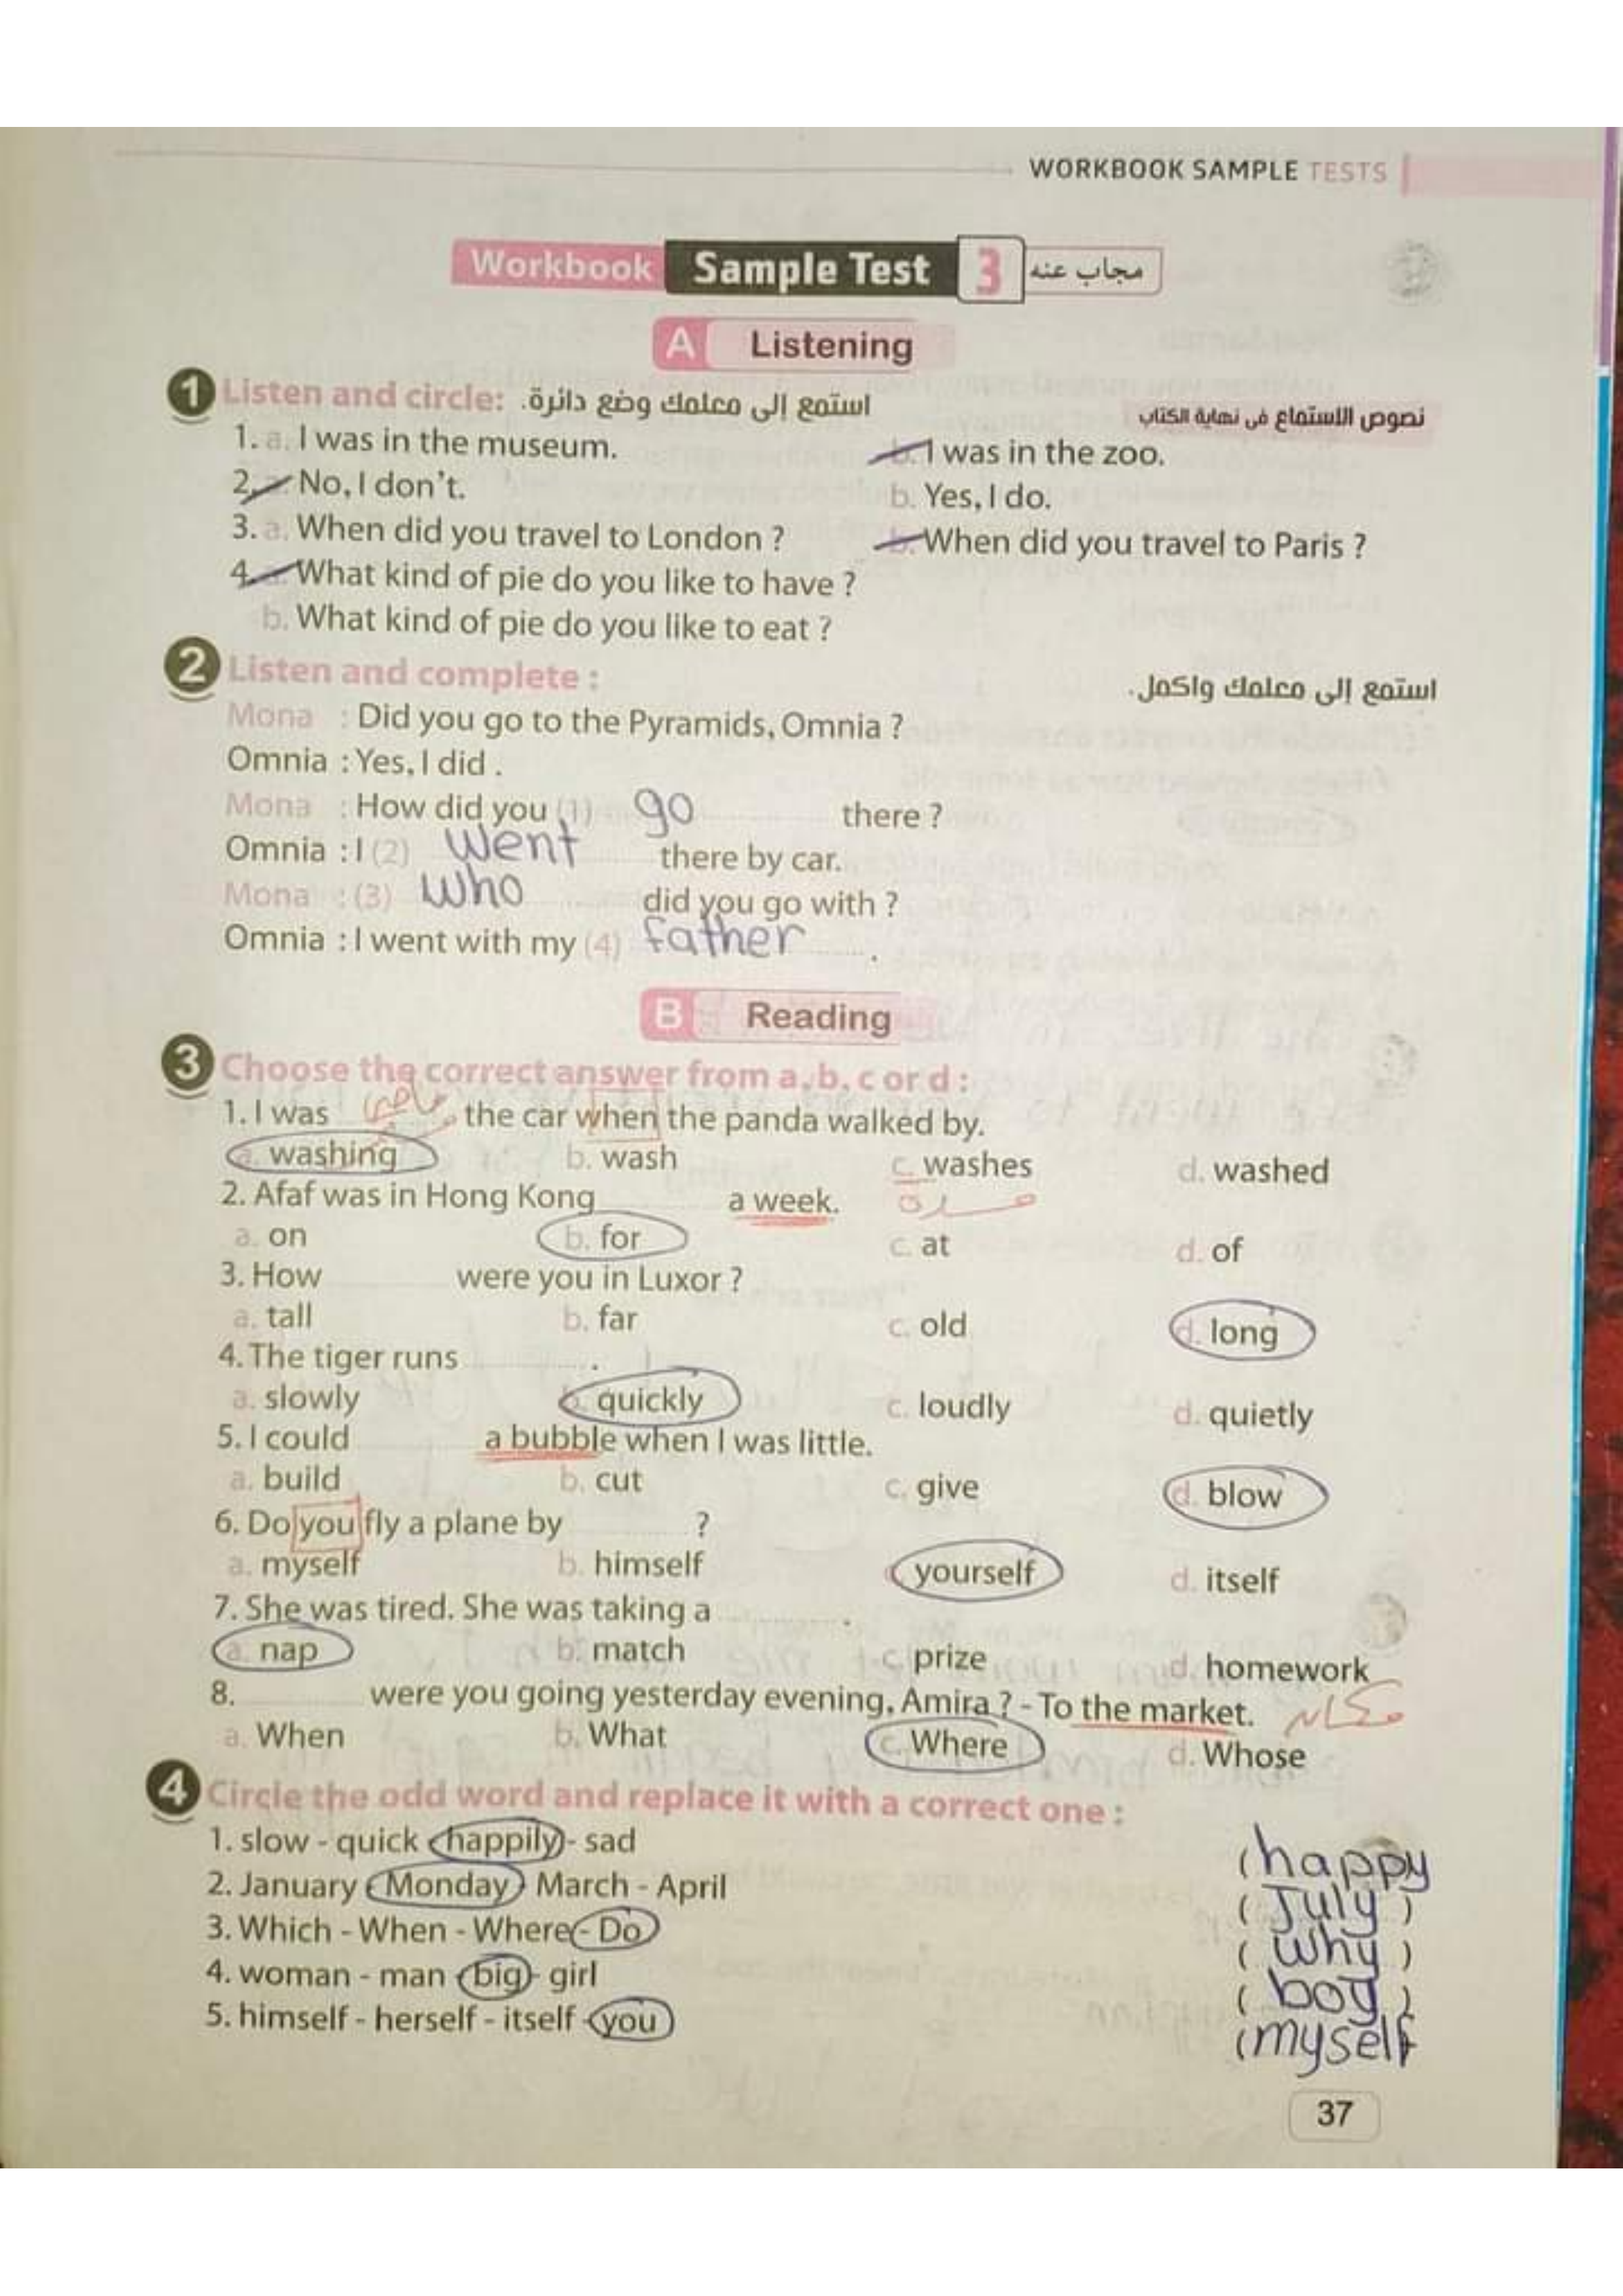 WORKBOOK SAMPLE TESTS
Workbook Sample Test 3 مجاب عنه
A Listening
1 Listen and circle: استمع إلى معلمك وضع دائرة. نصوص الاستماع فى نهاية الكتاب
1. a. I was in the museum. b. I was in the zoo.
2. a. No, I don't. b. Yes, I do.
3. a. When did you travel to London ? b. When did you travel to Paris ?
4. a. What kind of pie do you like to have ?
b. What kind of pie do you like to eat ?
2 Listen and complete : استمع إلى معلمك واكمل.
Mona : Did you go to the Pyramids, Omnia ?
Omnia : Yes, I did .
Mona : How did you (1) go there ?
Omnia : I (2) went there by car.
Mona : (3) who did you go with ?
Omnia : I went with my (4) father .
B Reading
3 Choose the correct answer from a, b, c or d :
1. I was the car when the panda walked by.
a. washing b. wash c. washes d. washed
2. Afaf was in Hong Kong a week. مدة
a. on b. for c. at d. of
3. How were you in Luxor ?
a. tall b. far c. old d. long
4. The tiger runs .
a. slowly b. quickly c. loudly d. quietly
5. I could a bubble when I was little.
a. build b. cut c. give d. blow
6. Do you fly a plane by ?
a. myself b. himself yourself d. itself
7. She was tired. She was taking a .
a. nap b. match c. prize d. homework
8. were you going yesterday evening, Amira ? - To the market. مكان
a. When b. What c. Where d. Whose
4 Circle the odd word and replace it with a correct one :
1. slow - quick - happily - sad (happy
2. January - Monday - March - April ( July )
3. Which - When - Where - Do ( why )
4. woman - man - big - girl ( boy )
5. himself - herself - itself - you (myself
37